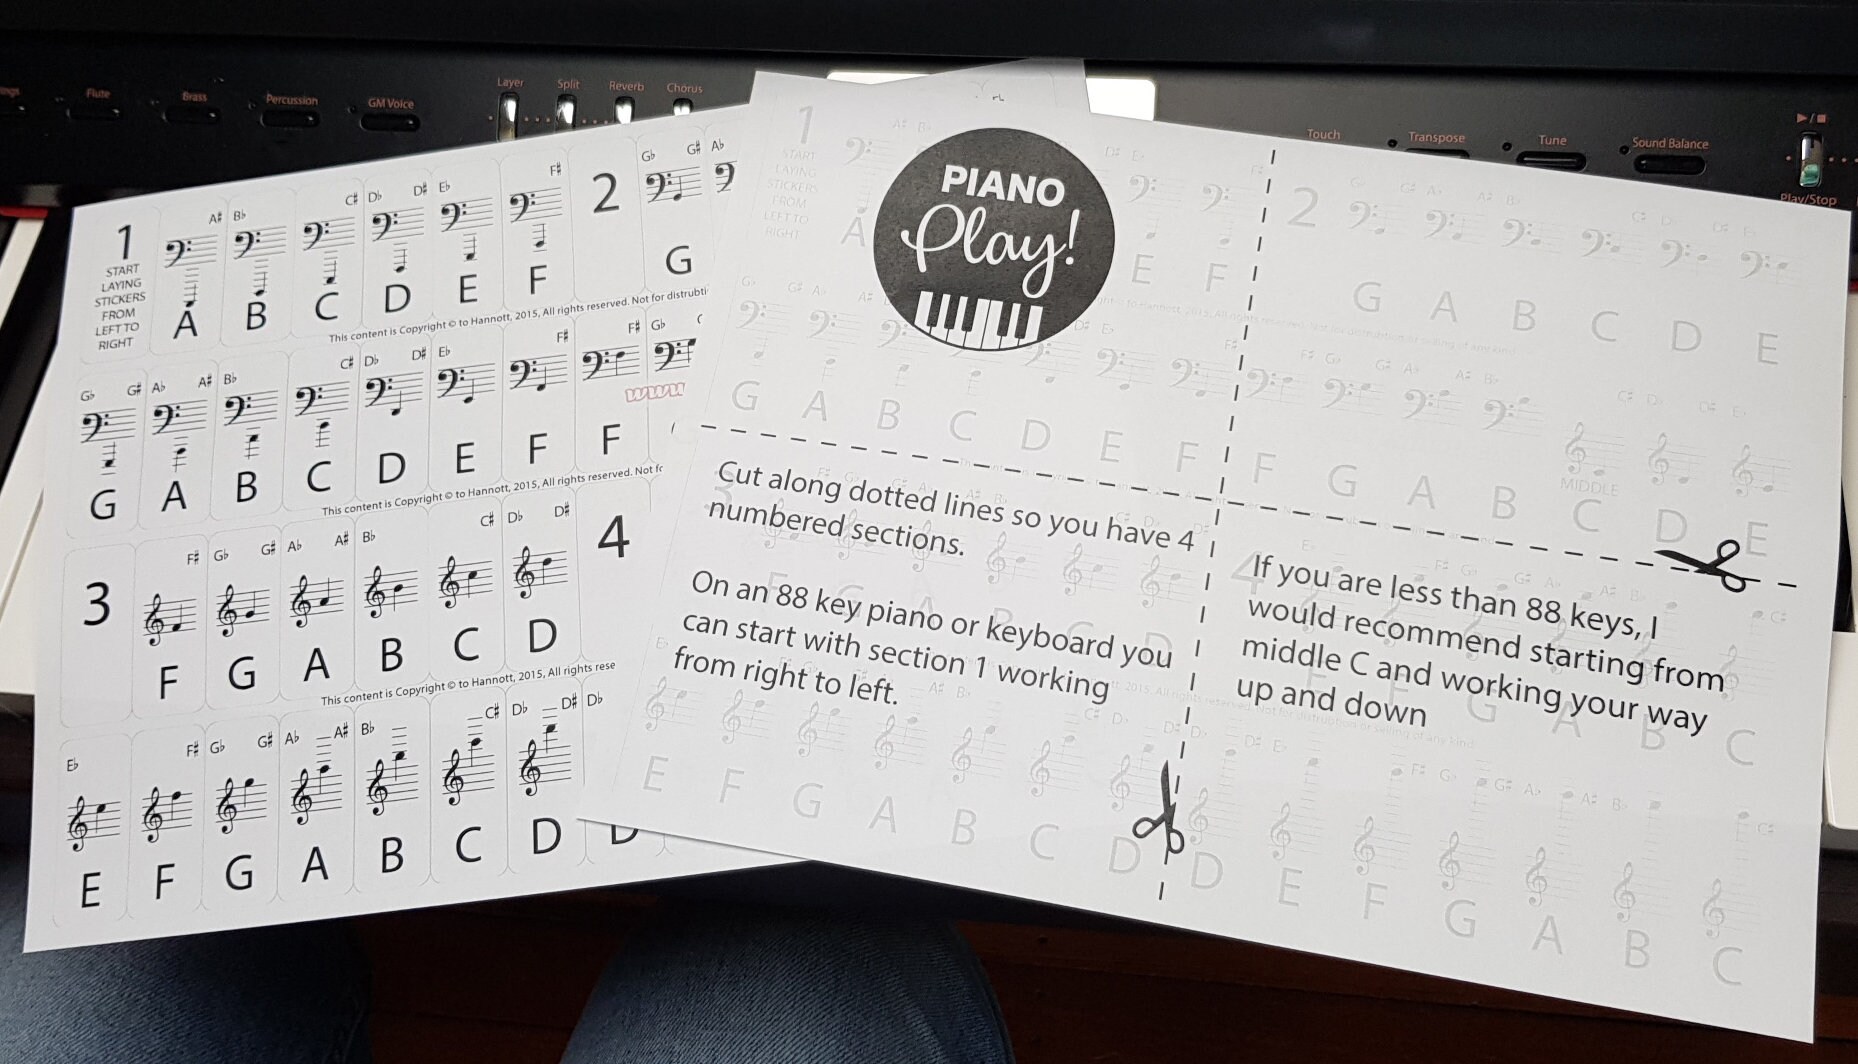 Flute
Brass
Percussion
GM Voice
Layer
Split
Reverb
Chorus
Touch
Transpose
Tune
Sound Balance
Play/Stop
1
START
LAYING
STICKERS
FROM
LEFT TO
RIGHT
A♯ B♭ C♯ D♭ D♯ E♭ F♯
A B C D E F
2
G♭ G♯ A♭
G
This content is Copyright © to Hannott, 2015, All rights reserved. Not for distrubti
G♭ G♯ A♭ A♯ B♭ C♯ D♭ D♯ E♭ F♯ F♯ G♭
www
G A B C D E F F
This content is Copyright © to Hannott, 2015, All rights reserved. Not fo
3
F♯ G♭ G♯ A♭ A♯ B♭ C♯ D♭ D♯
F G A B C D
4
This content is Copyright © to Hannott, 2015, All rights rese
E♭ F♯ G♭ G♯ A♭ A♯ B♭ C♯ D♭ D♯ D♭
E F G A B C D D
PIANO
Play!
1
START
LAYING
STICKERS
FROM
LEFT TO
RIGHT
A E F
2
G A B C D E
G A B C D E F
F G A B C D E
MIDDLE
Cut along dotted lines so you have 4
numbered sections.
On an 88 key piano or keyboard you
can start with section 1 working
from right to left.
If you are less than 88 keys, I
would recommend starting from
middle C and working your way
up and down
E F G A B C D
D E F G A B C